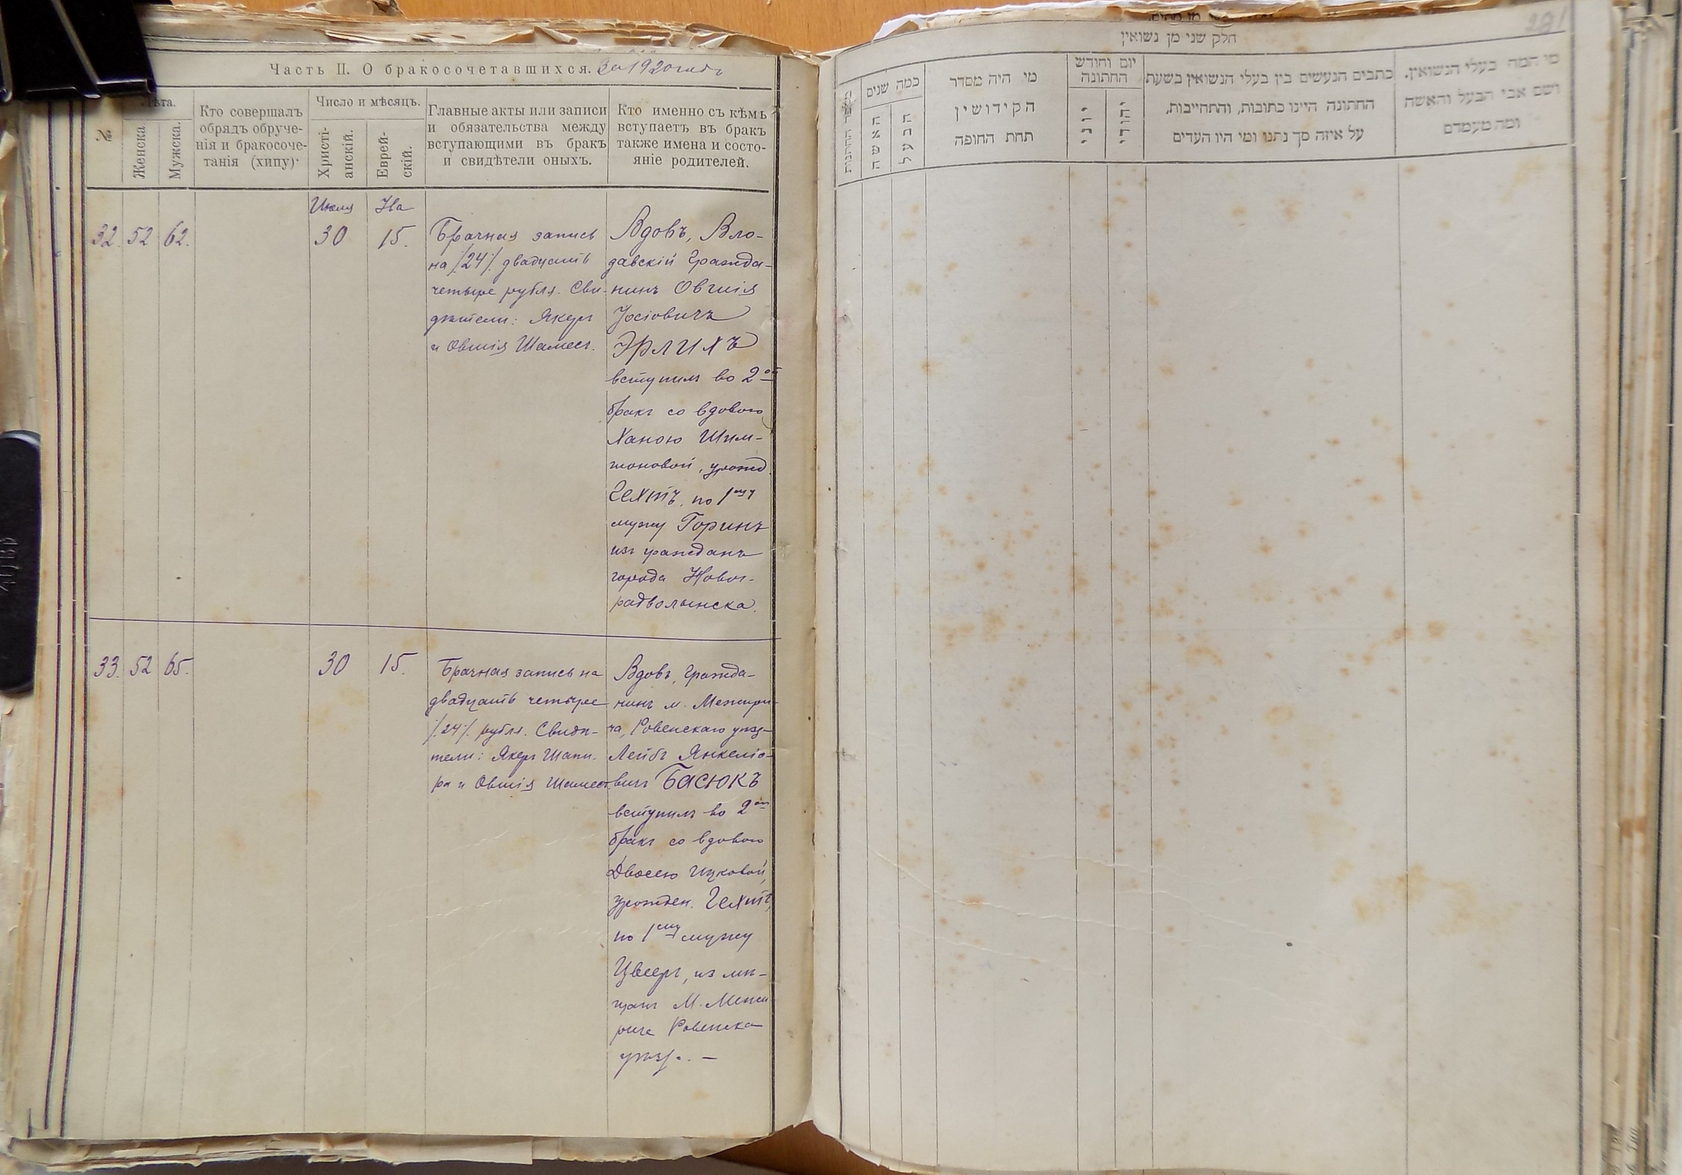 Часть II. О бракосочетавшихся. За 1920 годъ
Лѣта.
№
Женска
Мужска.
Кто совершалъ
обрядъ обруче-
нія и бракосоче-
танія (хипу)
Число и мѣсяцъ.
Христі-
анскій.
Еврей-
скій.
Главные акты или записи
и обязательства между
вступающими въ бракъ
и свидѣтели оныхъ.
Кто именно съ кѣмъ
вступаетъ въ бракъ
также имена и состо-
яніе родителей.
32. 52 62.
Июля
30
Ава
15.
Брачная запись
на /24/ двадцать
четыре рубля. Сви-
дѣтели: Якеръ
и Овшія Шамесъ.
Вдовъ, Вло-
давскій гражда-
нинъ Овшія
Іосіовичъ
ЭРЛИХЪ
вступилъ во 2ой
бракъ со вдовою
Ханою Шим-
шоновой, урожд.
Гехтъ, по 1му
мужу Горинъ
изъ гражданъ
города Новог-
радволынска.
33. 52 65. 30 15.
Брачная запись на
двадцать четыре
/24/ рубля. Свидѣ-
тели: Якеръ Шапи-
ра и Овшія Шамесъ
Вдовъ, гражда-
нинъ м. Межири-
ча, Ровенскаго уѣзда
Лейбъ Янкеліо-
вичъ Басюкъ
вступилъ во 2ой
бракъ со вдовою
Двосею Ицковой,
урожден. Гехтъ,
по 1му мужу
Цвееръ, из мѣ-
щанъ М. Межи
рича Ровенска
уѣзд. —
חלק שני מן נשואין
מי המה בעלי הנשואין.
ושם אבי הבעל והאשה
ומה מעמדם
כתבים הנעשים בין בעלי הנשואין בשעת
החתונה היינו כתובות, והתחייבות,
על איזה סך נתנו ומי היו העדים
יום וחודש
החתונה
יהודי
יוני
מי היה מסדר
הקידושין
תחת החופה
כמה שנים
הבעל
האשה